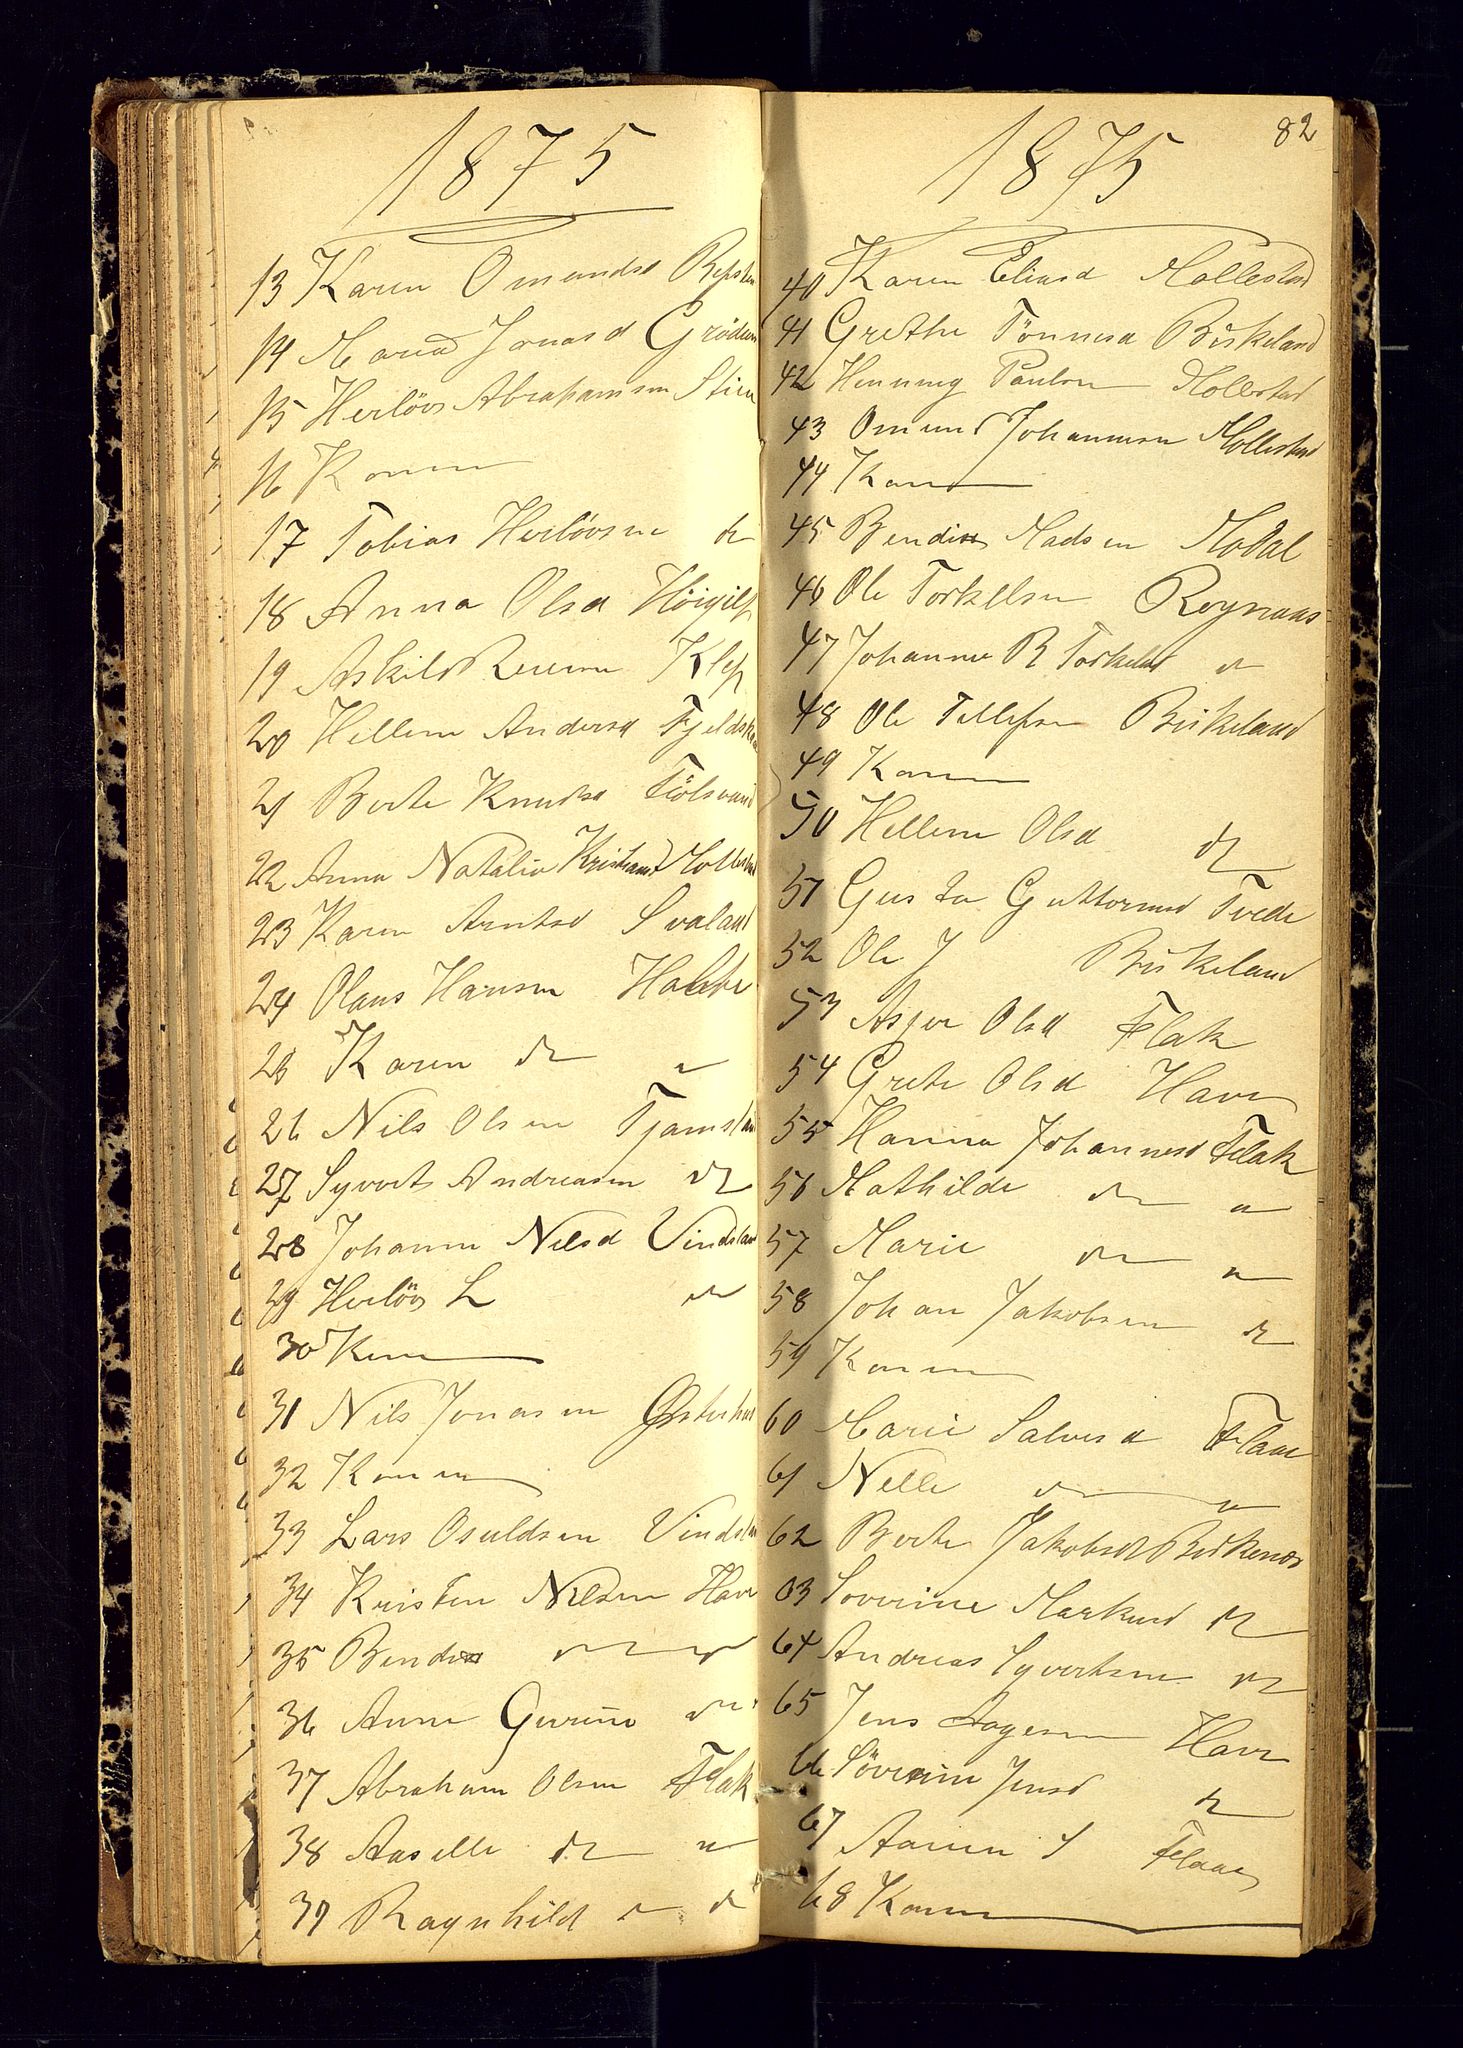 1875
13 Karen Omundsd Repsten
14 Maria Jonasd Grödum
15 Herlöv Abrahamsen Stien
16 Konen
17 Tobias Herlövsen do
18 Anna Olsd Höigilt
19 Askild Reiersen Klep
20 Hellene Andersd Fjeldska
21 Berte Knudsd Fiölsvand
22 Anna Natalia Kristiansd Mollestad
23 Karen Arntsd Svaland
24 Olaus Hansen Habbe
25 Karen do "
26 Nils Olsen Tjamsland
27 Syvert Andreasen do
28 Johanne Nilsd Vindsland
29 Herlöv L do
30 Konen
31 Nils Jonasen Østerhus
32 Konen
33 Lars Osuldsen Vindsland
34 Kristen Nilsen Have
35 Bendix do
36 Anne Gurine do
37 Abraham Olsen Flak
38 Aaselle do "
39 Ragnhild " do
1875
82
40 Karen Eliasd Mollestad
41 Grethe Tönnesd Birkeland
42 Henning Paulsen Mollestad
43 Omund Johannesen Mollestad
44 Konen
45 Bendix Madsen Modal
46 Ole Torkelsen Roynaas
47 Johanne R Torkelsd do
48 Ole Tellefsen Birkeland
49 Konen
50 Hellene Olsd do
51 Gusta Guttormsd Tvede
52 Ole J Birkeland
53 Asper Olsd Flak
54 Grete Olsd Have
55 Hanna Johannesd Flak
56 Mathilde do "
57 Marie do "
58 Johan Jakobsen do
59 Konen
60 Marie Salvesd Flaae
61 Nelle do "
62 Berte Jakobsd Birkenæs
63 Severine Markusd do
64 Andreas Syvertsen do
65 Jens Aagesen Have
66 Søverine Jensd do
67 Aanen S Flaae
68 Konen